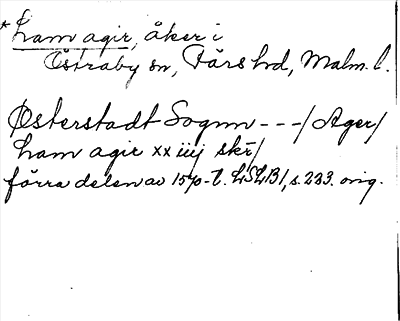 *Ham agir, åker i
Östraby sn, Färs hd, Malm. l.
Østerstadt Sognn ---/Ager/
Ham agir xx iiij skr/
förra delen av 1570-t. LSLB1, s. 233. orig.